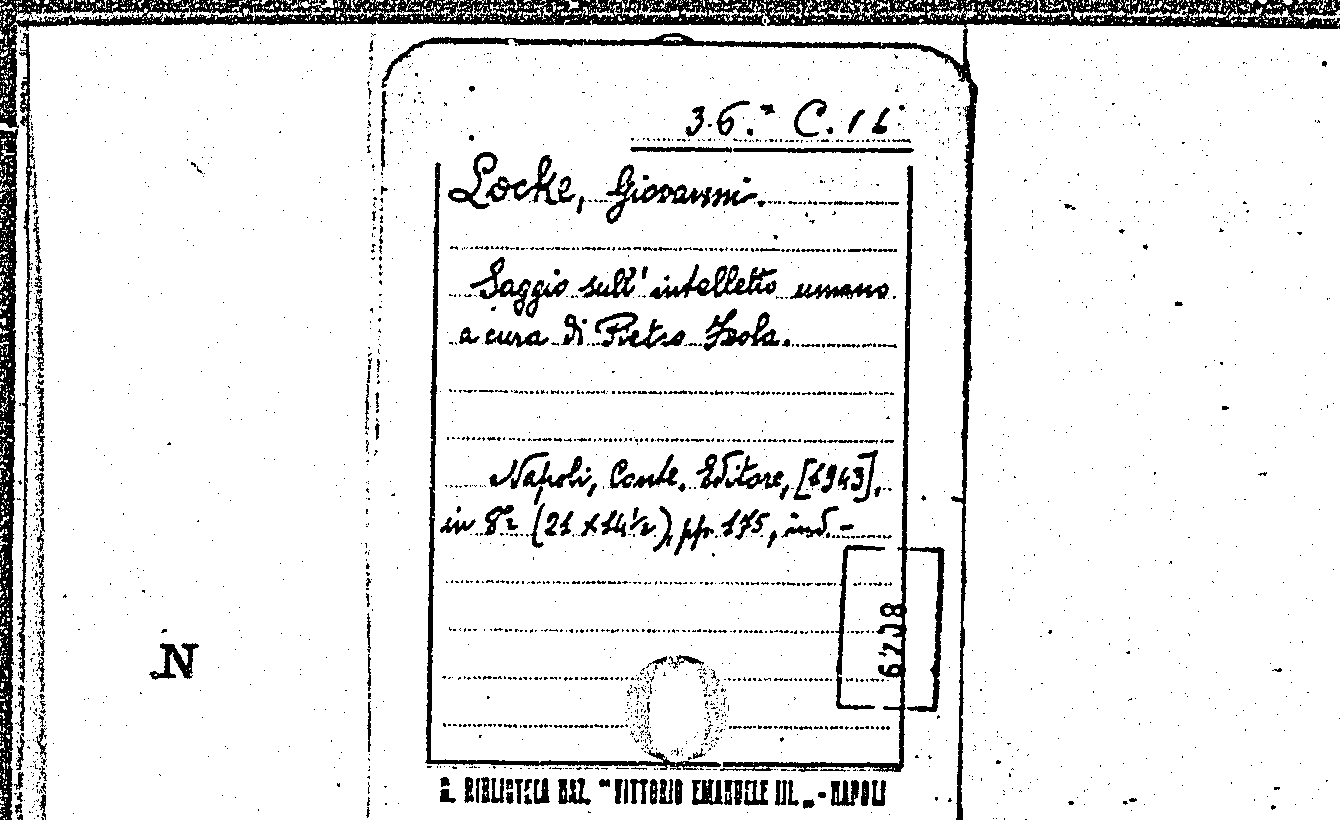 36.ª C. 16
Locke, Giovanni.
Saggio sull' intelletto umano
a cura di Pietro Isola.
Napoli, Conte, Editore, [1943],
in 8º (21 x 14½), pp. 175, ind.-
67208
N
R. BIBLIOTECA NAZ. "VITTORIO EMANUELE III." - NAPOLI